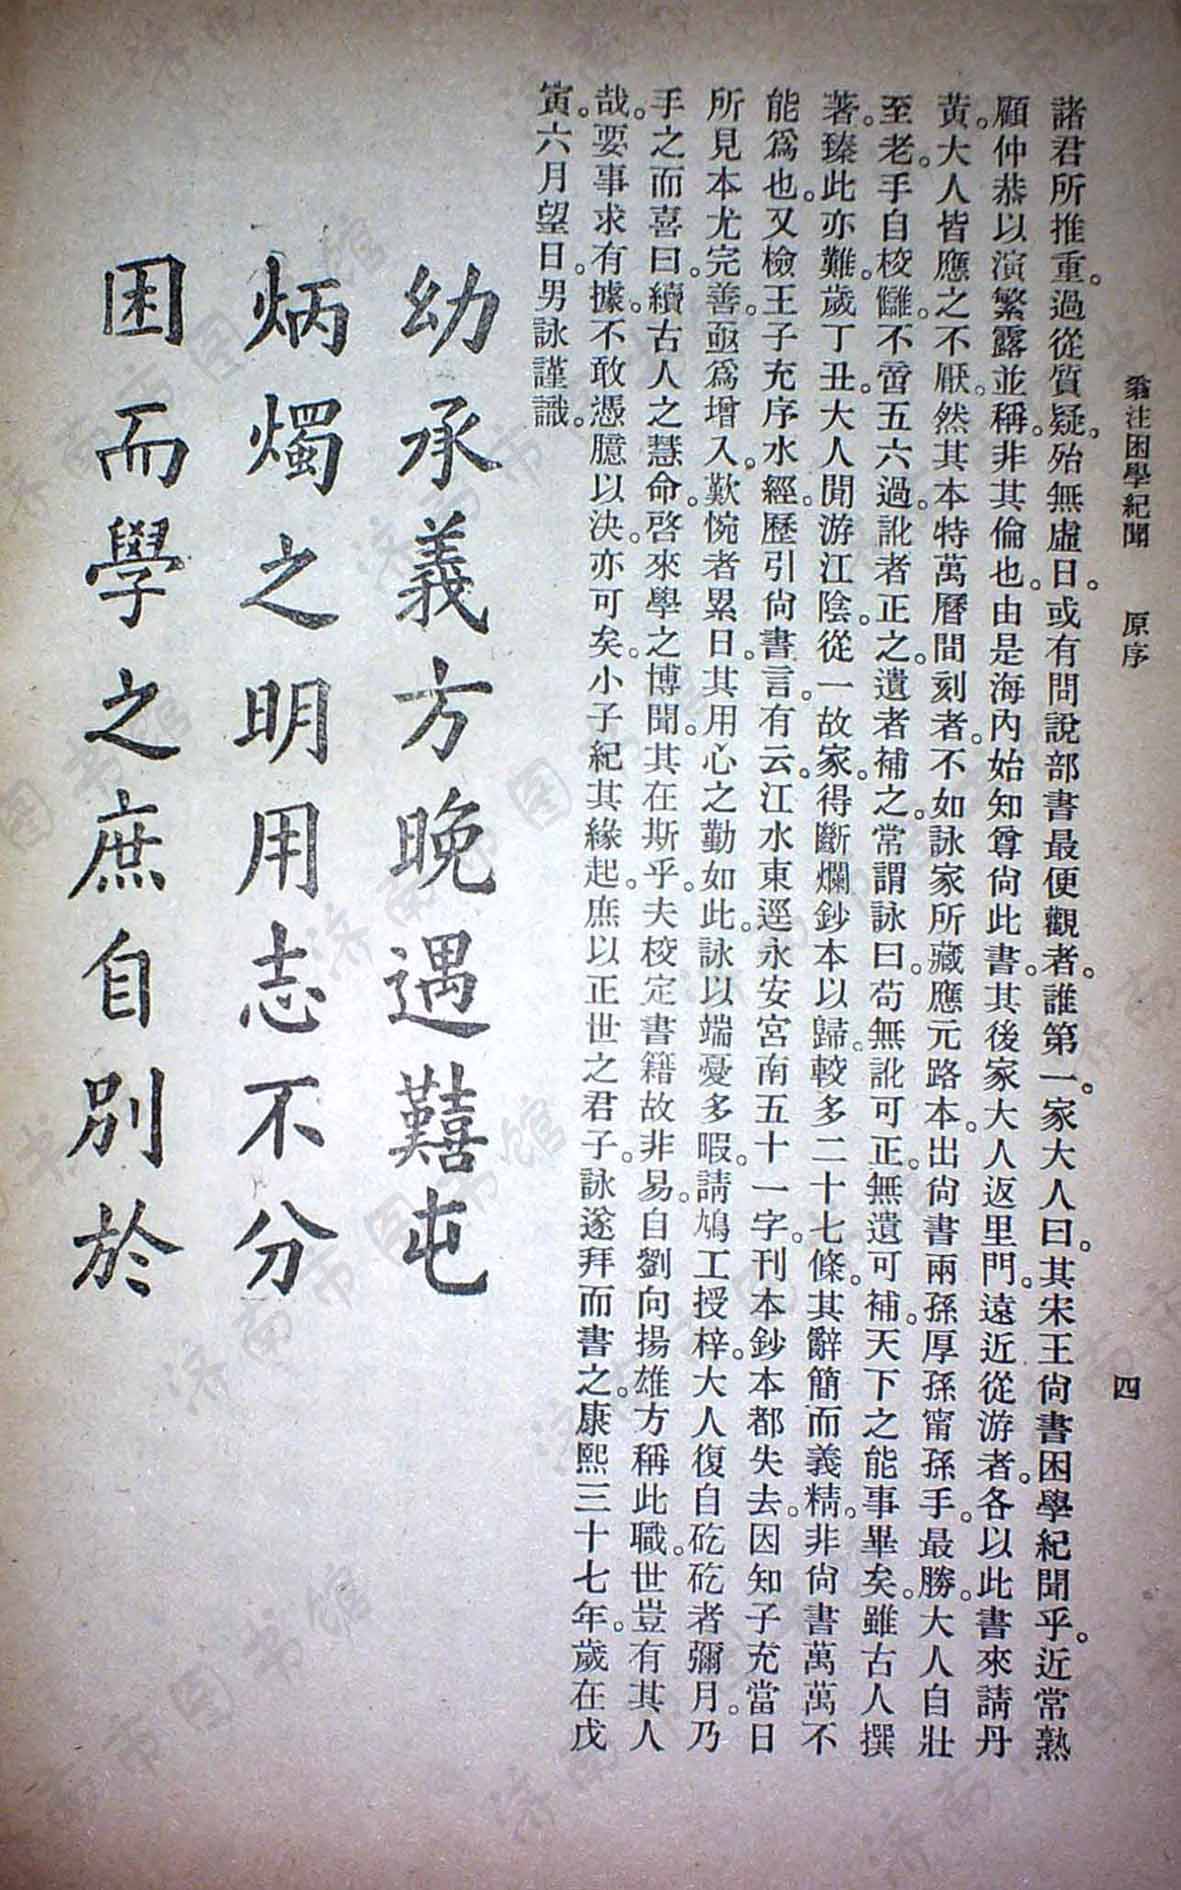 翁注困學紀聞 原序 四
諸君所推重。過從質疑。殆無虛日。或有問說部書最便觀者。誰第一。家大人曰。其宋王尙書困學紀聞乎。近常熟
顧仲恭以演繁露並稱。非其倫也。由是海內始知尊尙此書。其後家大人返里門。遠近從游者。各以此書來請丹
黃。大人皆應之不厭。然其本特萬曆間刻者。不如詠家所藏應元路本。出尙書兩孫厚孫甯孫手。最勝。大人自壯
至老。手自校讎。不啻五六過。訛者正之。遺者補之。常謂詠曰。苟無訛可正。無遺可補。天下之能事畢矣。雖古人撰
著。臻此亦難。歲丁丑。大人閒游江陰。從一故家。得斷爛鈔本以歸。較多二十七條。其辭簡而義精。非尙書萬萬不
能爲也。又檢王子充序水經。歷引尙書言。有云。江水東逕永安宮南五十一字。刊本鈔本都失去。因知子充當日
所見本尤完善。亟爲增入。歎惋者累日。其用心之勤如此。詠以端憂多暇。請鳩工授梓。大人復自矻矻者彌月。乃
手之而喜曰。續古人之慧命。啓來學之博聞。其在斯乎。夫校定書籍故非易。自劉向揚雄方稱此職。世豈有其人
哉。要事求有據。不敢憑臆以決。亦可矣。小子紀其緣起。庶以正世之君子。詠遂拜而書之。康熙三十七年。歲在戊
寅。六月望日。男詠謹識。
幼承義方晚遇囏屯
炳燭之明用志不分
困而學之庶自別於